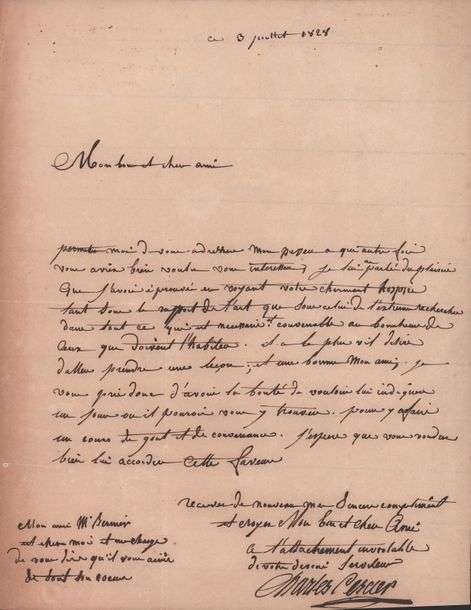 ce 3 juillet 1828
Mon bon et cher ami
permetez moi de vous adresser mon neveu a qui autre fois
vous aviez bien voulu vous interesser, je lui ai parlé du plaisir
que j'avois éprouvé en voyant votre charmant hospice
tant sous le rapport de l'art que sous celui de l'extreme recherche
dans tout ce qui est necessaire et convenable au bonheur de
ceux qui doivent l'habiter. il a le plus vif desir
d'aller prendre une leçon, et une bonne Mon ami, je
vous prie donc d'avoir la bonté de vouloir lui indiquer
un jour ou il pourroit vous y trouver pour y faire
un cours de gout et de convenance. J'espere que vous voudrez
bien lui accorder cette faveur
recevez de nouveau mes sinceres compliments
et croyez Mon bon et cher Ami
a l'attachement inviolable
de votre devoué serviteur
Charles Percier
Mon ami Mr Bernier
est chez moi et me charge
de vous dire qu'il vous aime
de tout son coeur